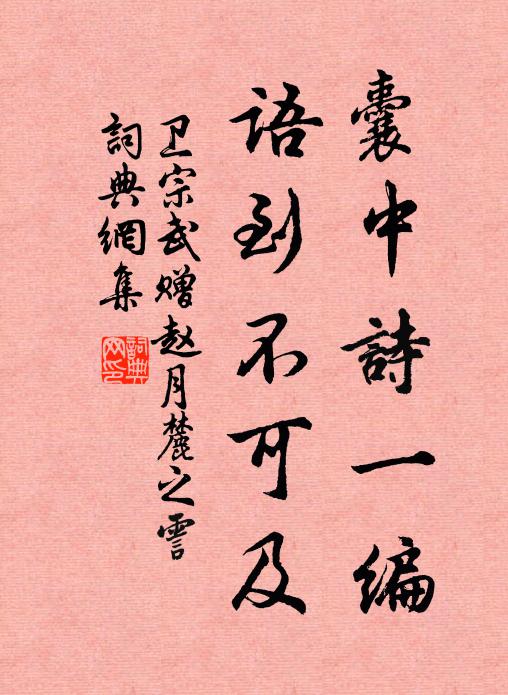 囊中詩一編
語到不可及
卫宗武赠赵月麓之霅
詞典網集
詞典網印